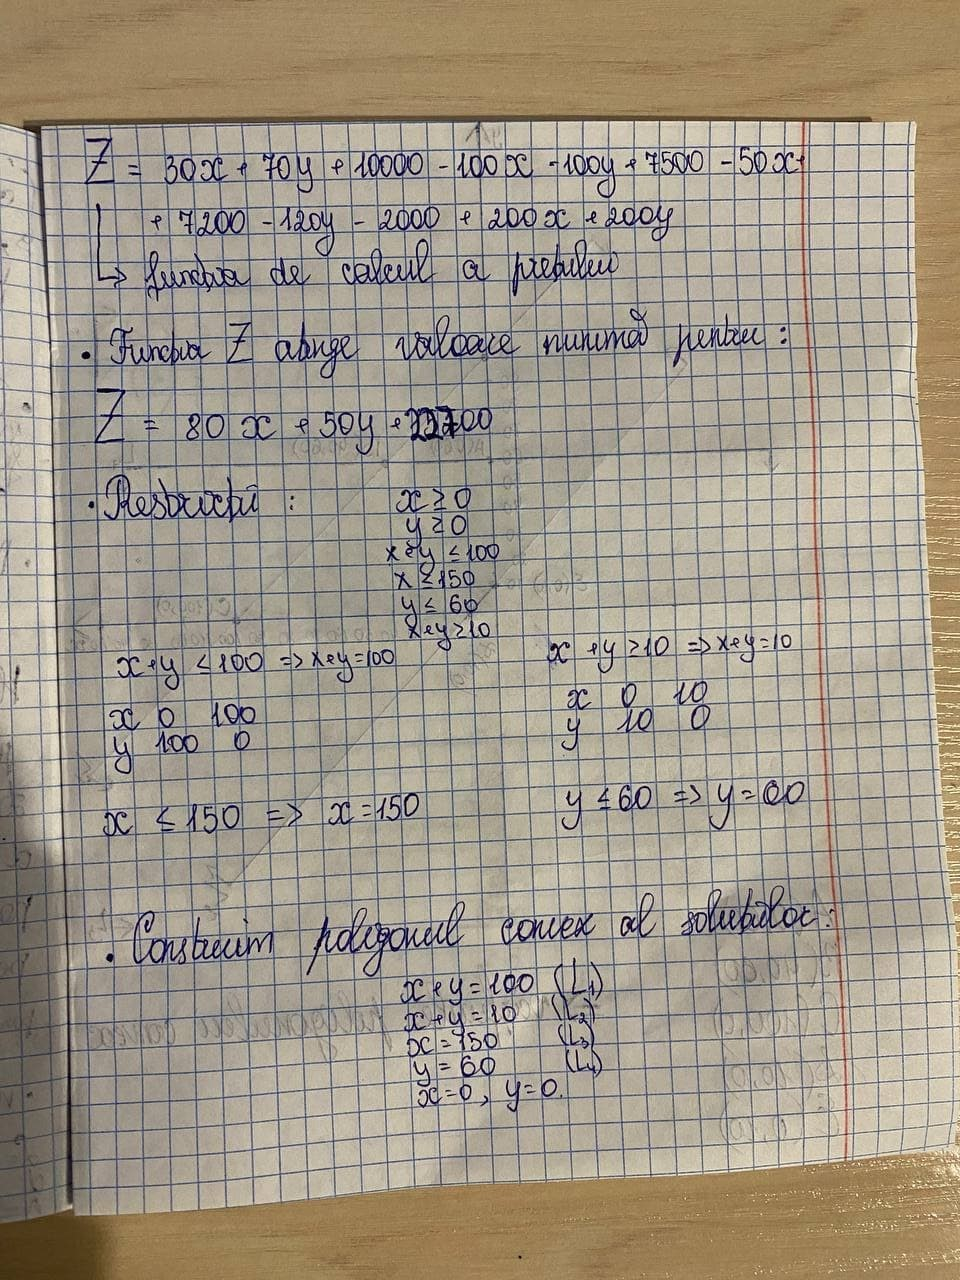 Z = 30x + 70y + 10000 - 100x - 100y + 7500 - 50x +
+ 7200 - 120y - 2000 + 200x + 200y
↳ funcția de calcul a prețului
• Funcția Z atinge valoare minimă pentru :
Z = 80x + 50y + 22700
• Restricții :
x ≥ 0
y ≥ 0
x+y ≤ 100
x ≤ 150
y ≤ 60
x+y ≥ 10
x+y ≤ 100 => x+y=100
x 0 100
y 100 0
x +y ≥ 10 => x+y=10
x 0 10
y 10 0
x ≤ 150 => x=150
y ≤ 60 => y=60
• Construim poligonul convex al soluțiilor :
x+y=100 (L1)
x+y=10 (L2)
x=150 (L3)
y=60 (L4)
x=0, y=0.